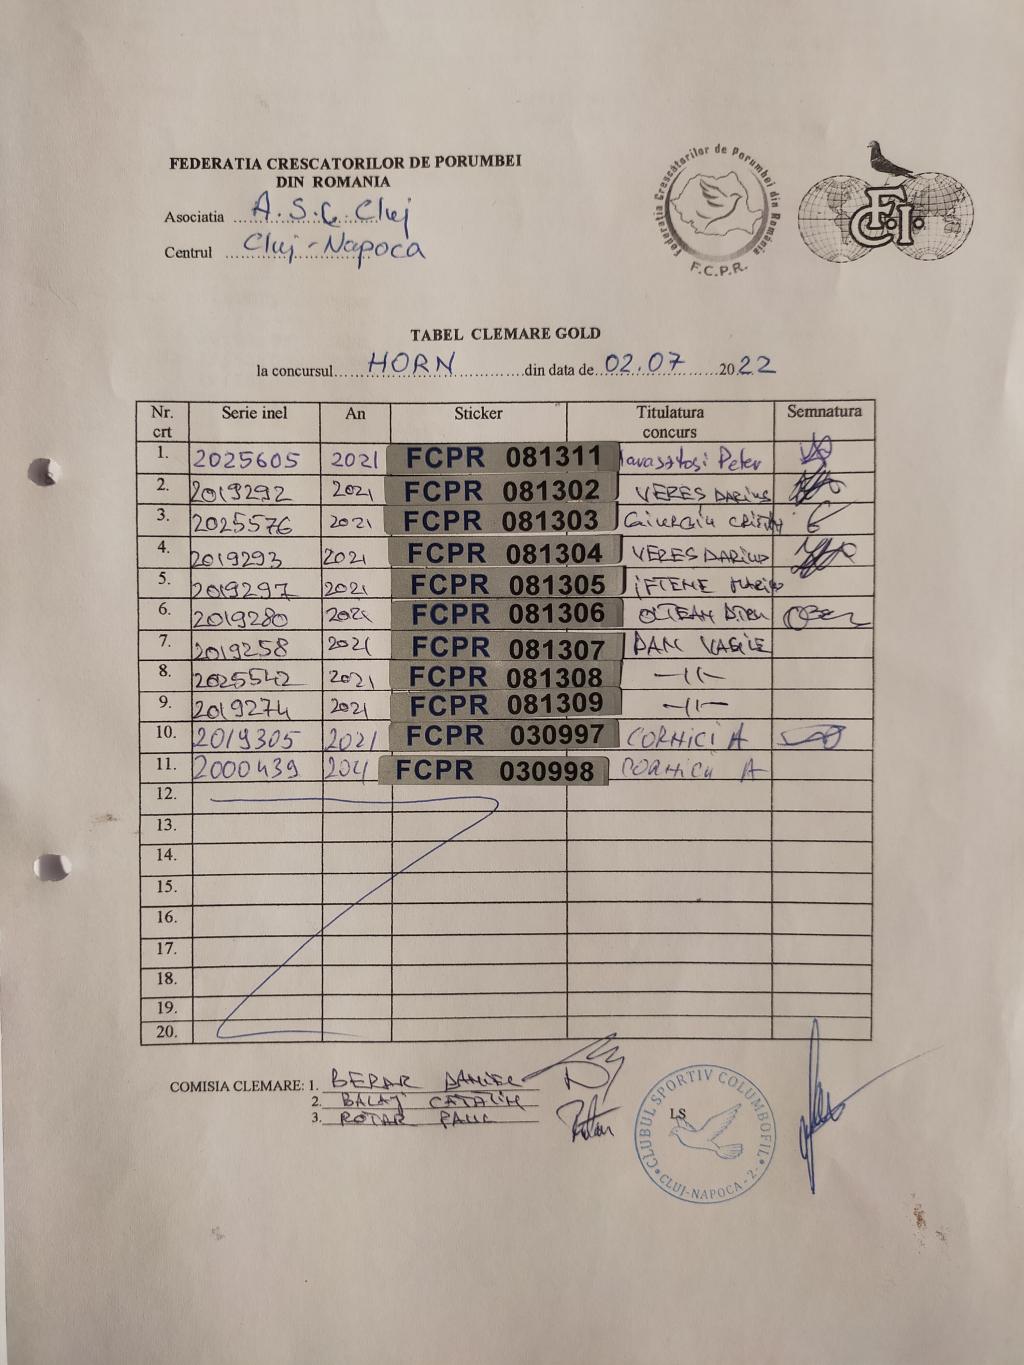 FEDERATIA CRESCATORILOR DE PORUMBEI
DIN ROMANIA
Asociatia A.S.C. Cluj
Centrul Cluj-Napoca
Federatia Crescătorilor de Porumbei din România
F.C.P.R.
F.C.I.
TABEL CLEMARE GOLD
la concursul HORN din data de 02.07 2022
Nr. crt Serie inel An Sticker Titulatura concurs Semnatura
1. 2025605 2021 FCPR 081311 Peter
2. 2019292 2021 FCPR 081302 VERES DARIUS
3. 2025576 2021 FCPR 081303
4. 2019293 2021 FCPR 081304 VERES DARIUS
5. 2019297 2021 FCPR 081305 IFTENE
6. 2019280 2021 FCPR 081306 OLTEAN
7. 2019258 2021 FCPR 081307 DAN VASILE
8. 2025542 2021 FCPR 081308 -//-
9. 2019274 2021 FCPR 081309 -//-
10. 2019305 2021 FCPR 030997 CORNICI A
11. 2000439 FCPR 030998 A
12.
13.
14.
15.
16.
17.
18.
19.
20.
COMISIA CLEMARE: 1. BERAR DANIEL
2. BALAJ CATALIN
3. ROTAR PAUL
LS
CLUBUL SPORTIV COLUMBOFIL
CLUJ-NAPOCA - 2 -